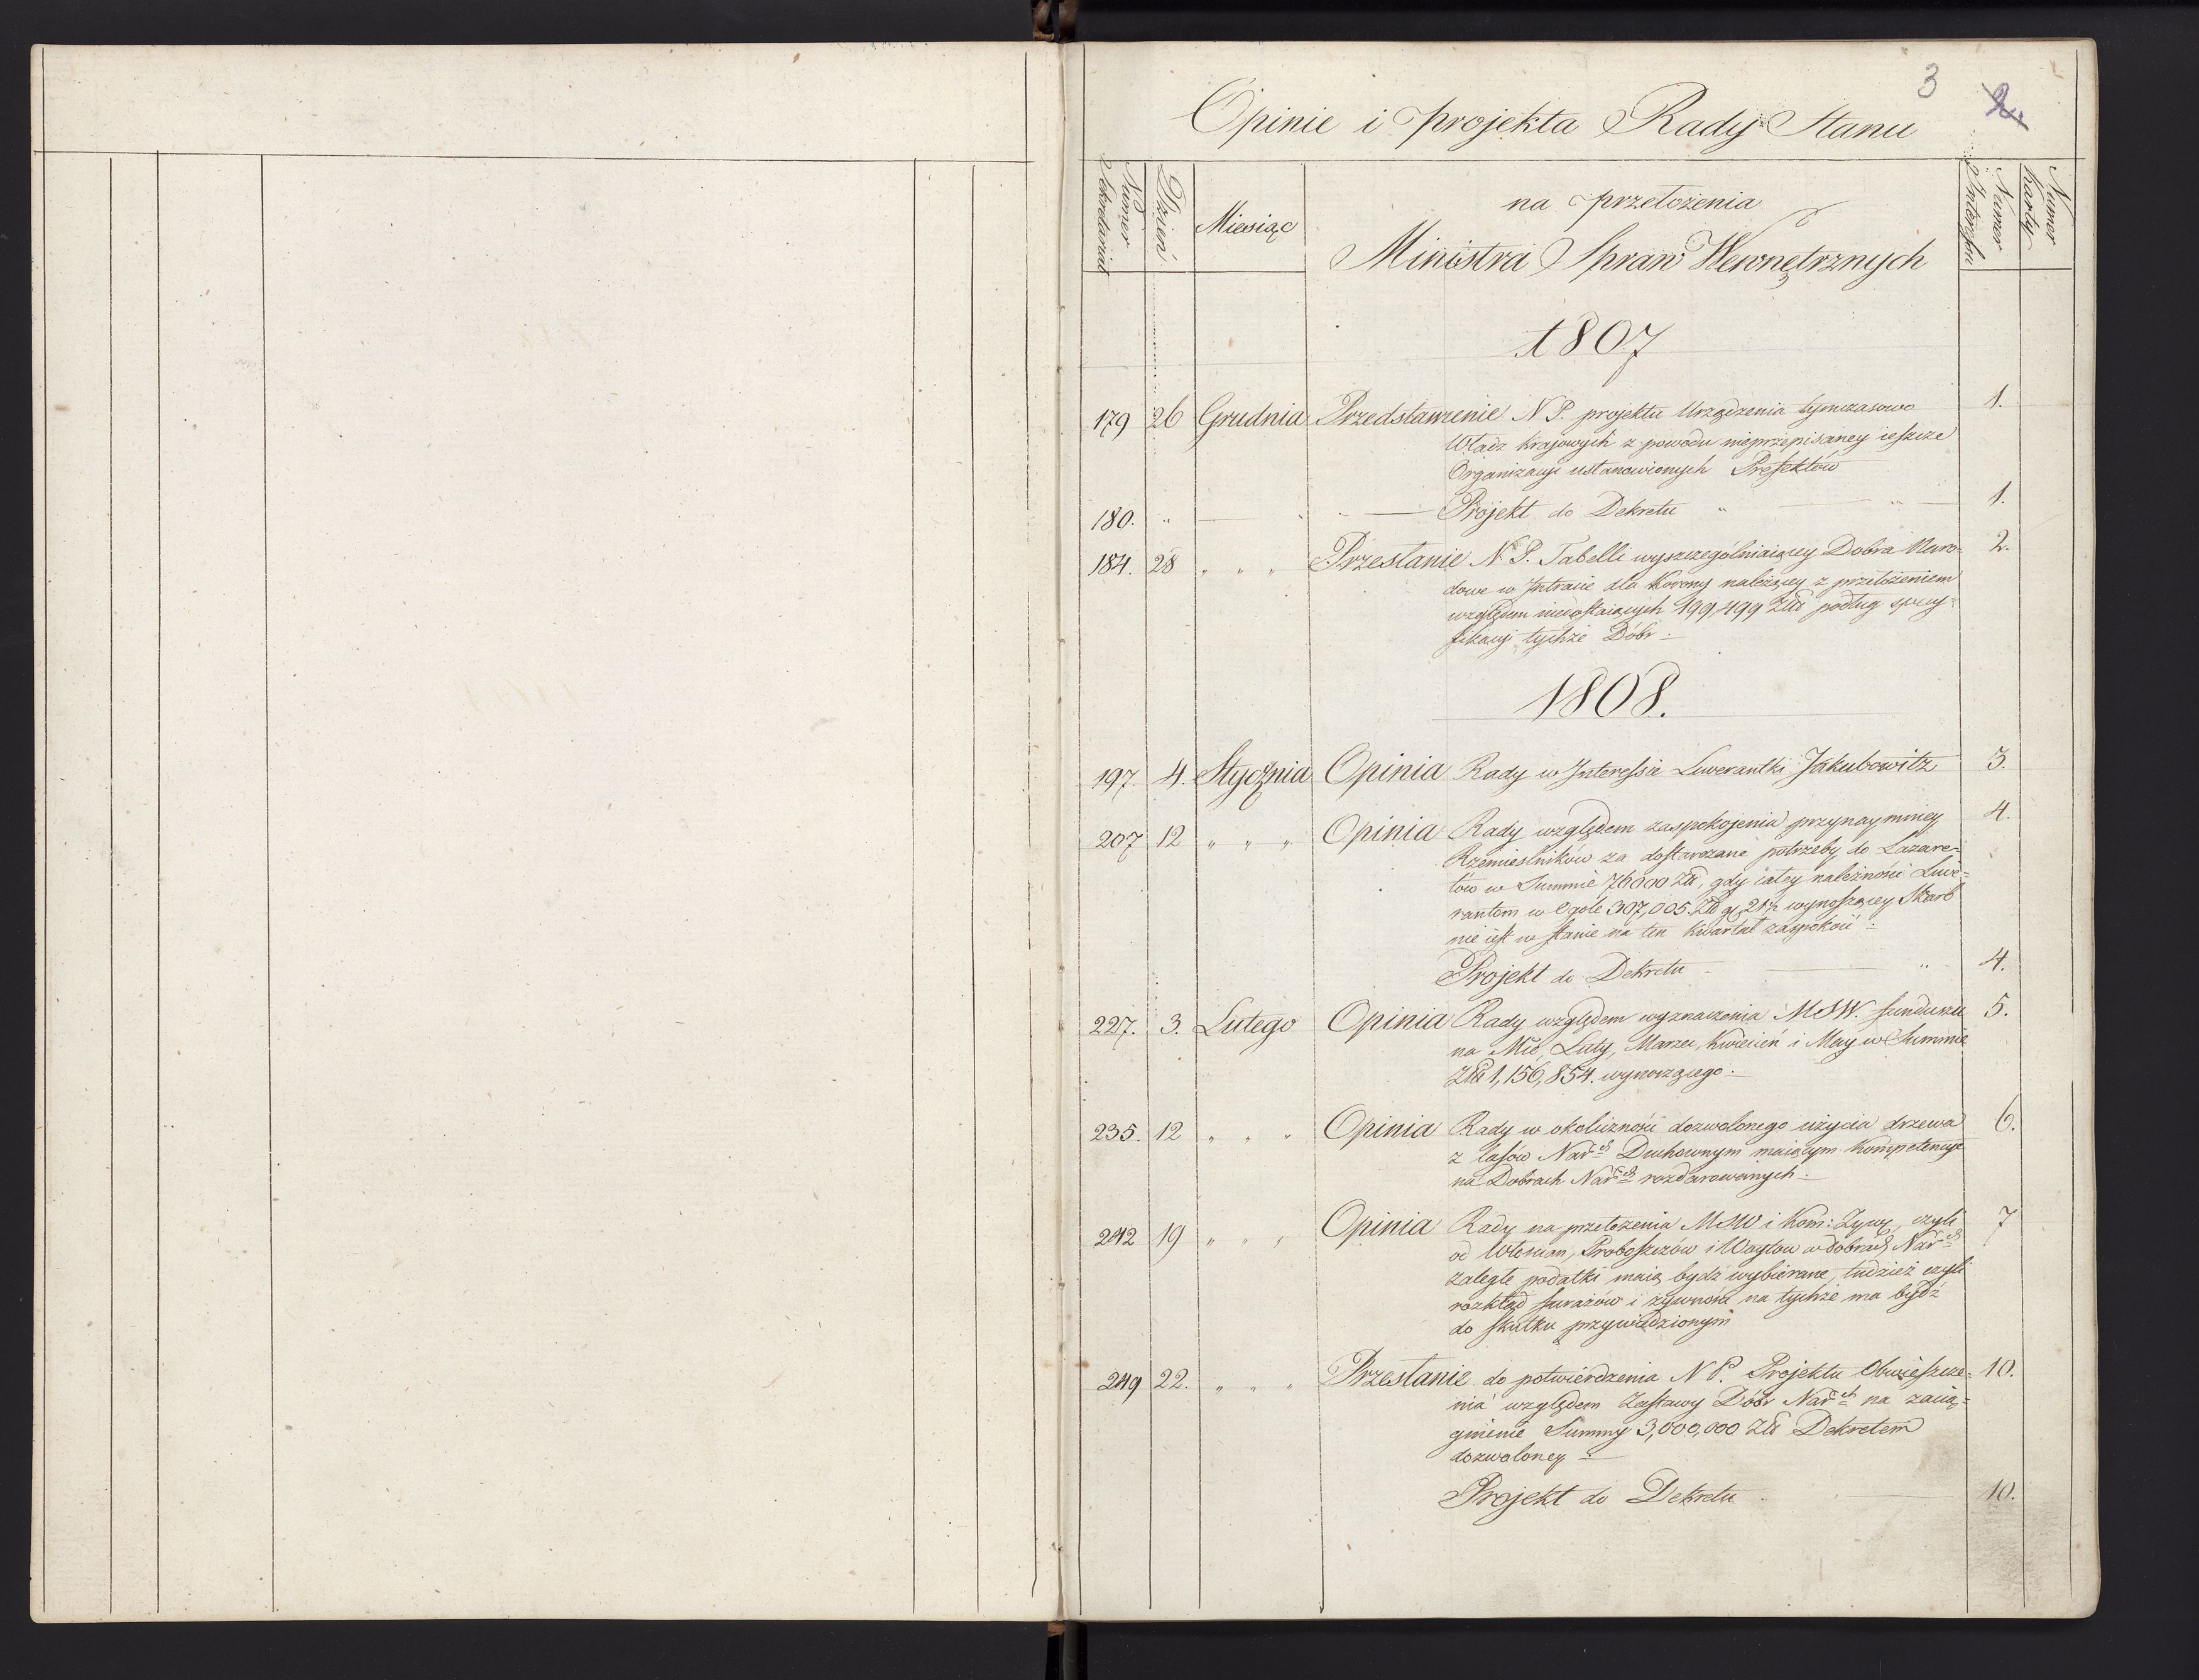 3 2.
Opinie i projekta Rady Stanu
Numer Sekretariat
Dzień
Miesiąc
na przełożenia
Ministra Spraw Wewnętrznych
Numer Interessu
Numer Karty
1807
179 26 Grudnia Przedstawienie N P. projektu Urządzenia tymczasowo 1.
Władz krajowych z powodu nieprzepisaney ieszcze
Organizacyi ustanowionych Prefektów
180. „ — Projekt do Dekretu „ — „ — 1.
184. 28 „ „ „ Przesłanie N. P. Tabelli wyszczególniaiącey Dobra Naro- 2.
dowe w Intracie dla Korony należącey z przełożeniem
względem niedostaiących 199,499 Złł podług specy-
fikacyi tychże Dóbr :
1808.
197. 4. Stycznia Opinia Rady w Interessie Liwerantki Jakubowitz 3.
207 12 „ „ „ Opinia Rady względem zaspokojenia przynaymniey 4.
Rzemieslników za dostarczane potrzeby do Lazare-
tów w Summie 76000 Złł, gdy całey należności Liwe-
rantom w Ogóle 307,005. Złł gr 21½ wynoszącey Skarb
nie iest w stanie na ten Kwartał zaspokoić :
Projekt do Dekretu — „ 4.
227. 3. Lutego Opinia Rady względem wyznaczenia MSW. funduszu 5.
na Mc, Luty, Marzec, Kwiecień i May w Summie
Złł 1,156,854. wynoszącego :
235. 12 „ „ „ Opinia Rady w okoliczności dozwolonego użycia drzewa 6.
z Lasów Narch Duchownym maiącym Kompetencye
na Dobrach Narch rozdarowanych :
242 19 „ „ „ Opinia Rady na przełożenia MSW i Kom: Żywn, czyli 7
od Włoscian, Proboszczów i Waytow w dobrach Narch
zaległe podatki maią bydź wybierane, tudzież czyli
rozkład furażów i żywności na tychże ma bydź
do skutku przywiedzionym
249 22. „ „ „ Przesłanie do potwierdzenia N P. Projektu Obwieszcze- 10.
nia względem Zastawy Dóbr Narch na zacią-
gnienie Summy 3,000,000 Złł Dekretem
dozwoloney :
Projekt do Dekretu — 10.